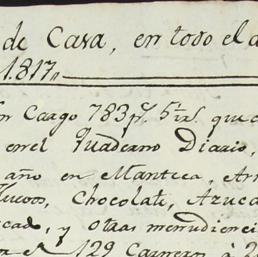 de Casa, en todo el a
1817,
n Cargo 783 p.s 5 rs. que c
en el Quaderno Diario,
año en Manteca, Ar
Huevos, Chocolate, Azuca
cado, y otras menudienci
n el 129 Carneros à 2